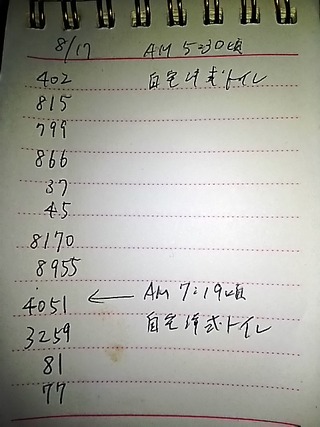 8/17 AM 5:30頃
402 自宅洋式トイレ
815
799
866
37
45
8170
8955
4051 ← AM 7:19頃
3259 自宅洋式トイレ
81
77